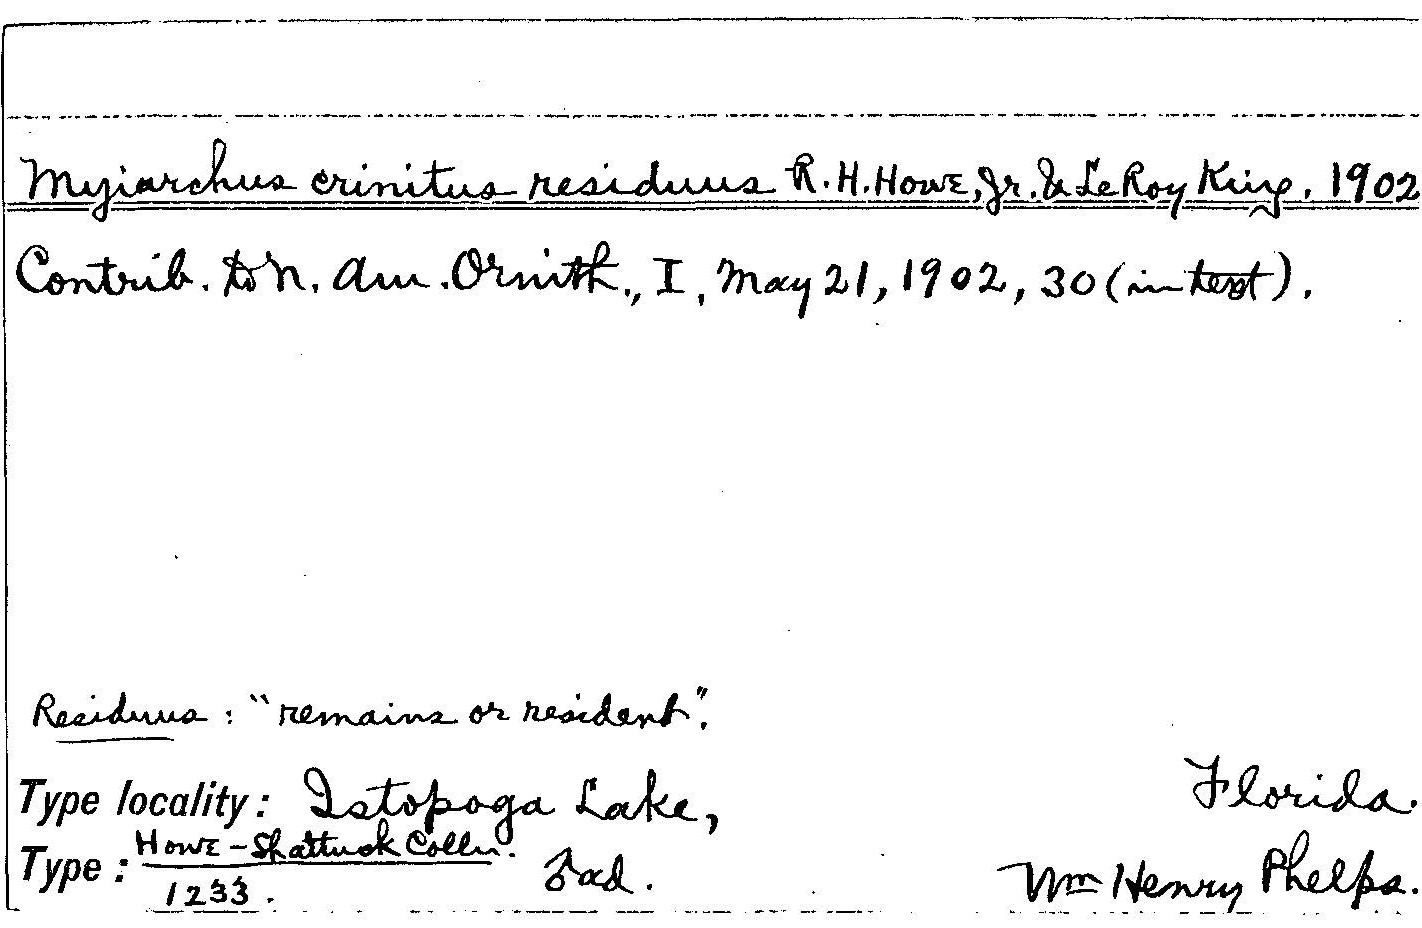 Myiarchus crinitus residuus R. H. Howe, Jr. & LeRoy King, 1902
Contrib. to N. Am. Ornith., I, May 21, 1902, 30 (in text).
Residuus : "remains or resident".
Type locality: Istopoga Lake, Florida.
Type: Howe-Shattuck Colln. 1233. ♂ ad. Wm Henry Phelps.